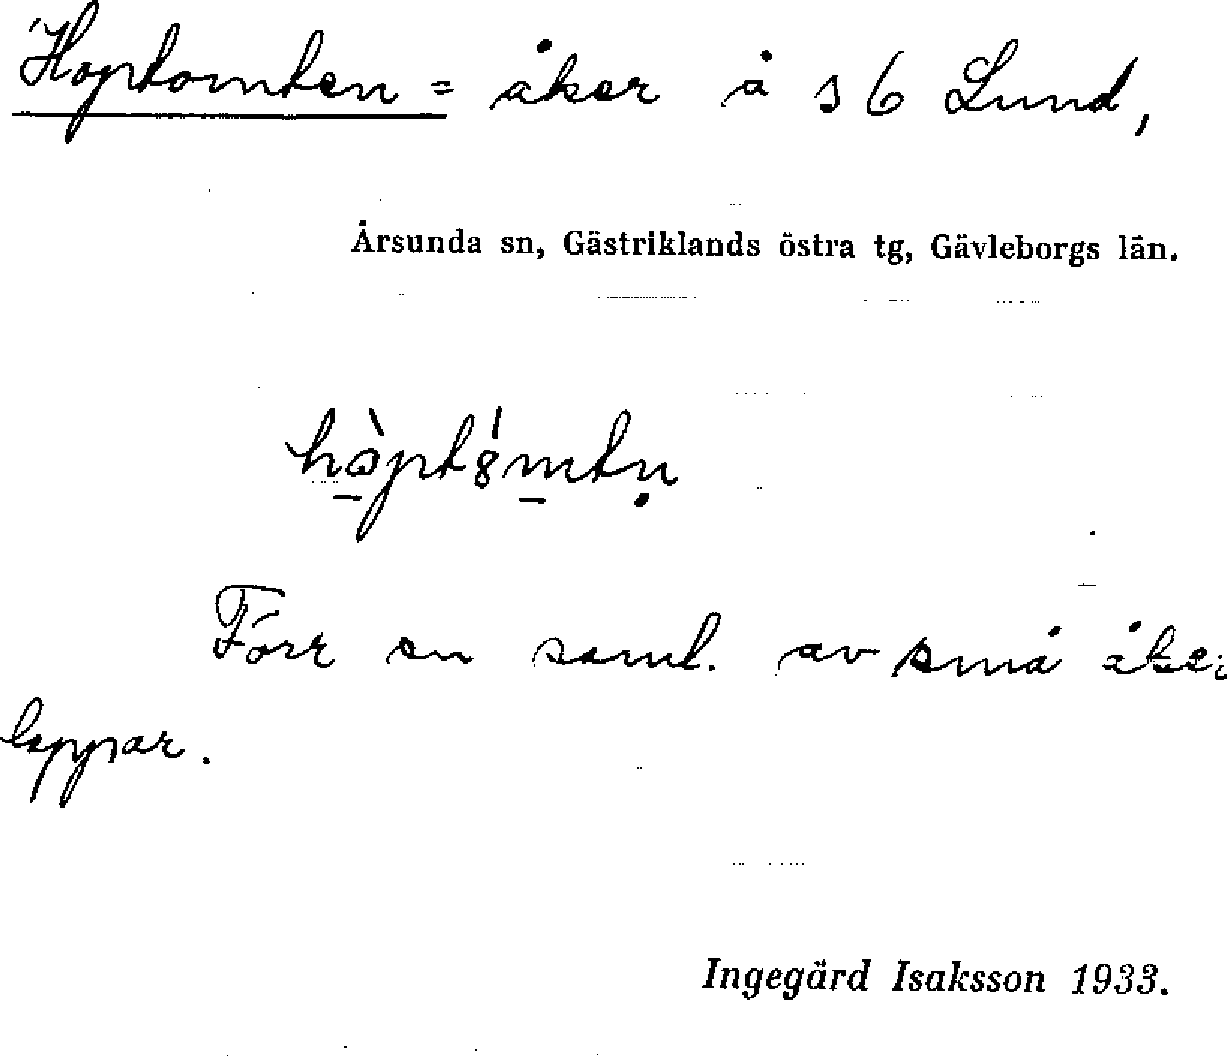 Hoptomten = åker å s 6 Lund,
Årsunda sn, Gästriklands östra tg, Gävleborgs län.
Förr en saml. av små åker
lappar.
Ingegärd Isaksson 1933.